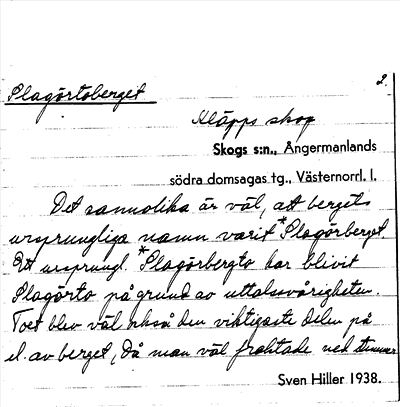 2.
Plagörtoberget
Kläpps skog
Skogs s:n., Ångermanlands
södra domsagas tg., Västernorrl. l.
Det sannolika är väl, att bergets
ursprungliga namn varit *Plagörberget.
Ett ursprungl. *Plagörbergto har blivit
Plagörto på grund av uttalssvårigheten.
Toet blev väl också den viktigaste delen på
el. av berget, då man väl fraktade ned timmer
Sven Hiller 1938.